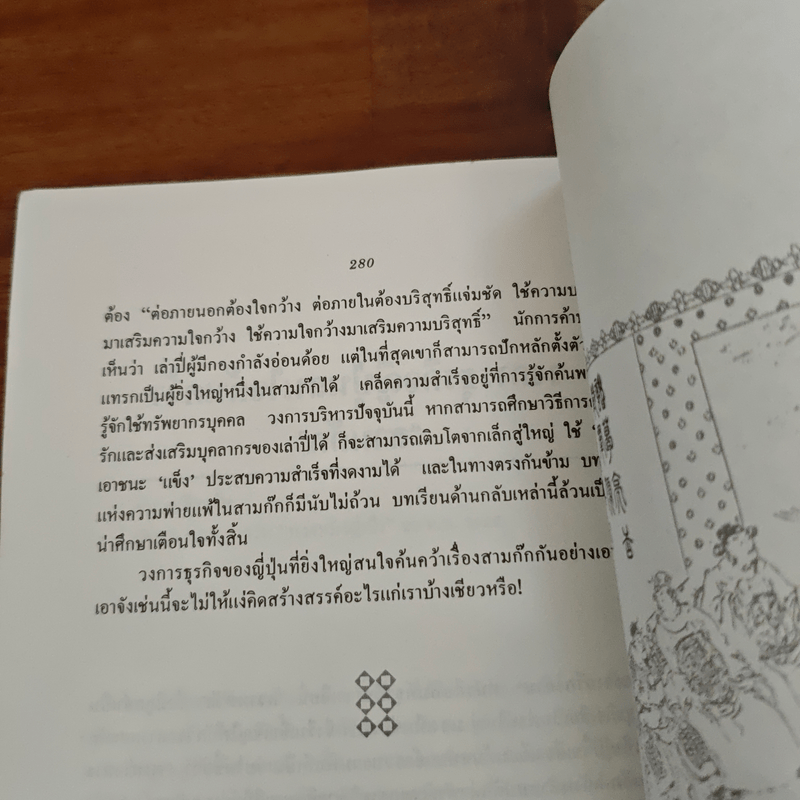 280
ต้อง “ต่อภายนอกต้องใจกว้าง ต่อภายในต้องบริสุทธิ์แจ่มชัด ใช้ความบ
มาเสริมความใจกว้าง ใช้ความใจกว้างมาเสริมความบริสุทธิ์” นักการค้า
เห็นว่า เล่าปี่ผู้มีกองกำลังอ่อนด้อย แต่ในที่สุดเขาก็สามารถปักหลักตั้งตัว
แทรกเป็นผู้ยิ่งใหญ่หนึ่งในสามก๊กได้ เคล็ดความสำเร็จอยู่ที่การรู้จักค้นพ
รู้จักใช้ทรัพยากรบุคคล วงการบริหารปัจจุบันนี้ หากสามารถศึกษาวิธีการ
รักและส่งเสริมบุคลากรของเล่าปี่ได้ ก็จะสามารถเติบโตจากเล็กสู่ใหญ่ ใช้
เอาชนะ ‘แข็ง’ ประสบความสำเร็จที่งดงามได้ และในทางตรงกันข้าม บท
แห่งความพ่ายแพ้ในสามก๊กก็มีนับไม่ถ้วน บทเรียนด้านกลับเหล่านี้ล้วนเป็
น่าศึกษาเตือนใจทั้งสิ้น
วงการธุรกิจของญี่ปุ่นที่ยิ่งใหญ่สนใจค้นคว้าเรื่องสามก๊กกันอย่างเอา
เอาจังเช่นนี้จะไม่ให้แง่คิดสร้างสรรค์อะไรแก่เราบ้างเชียวหรือ!